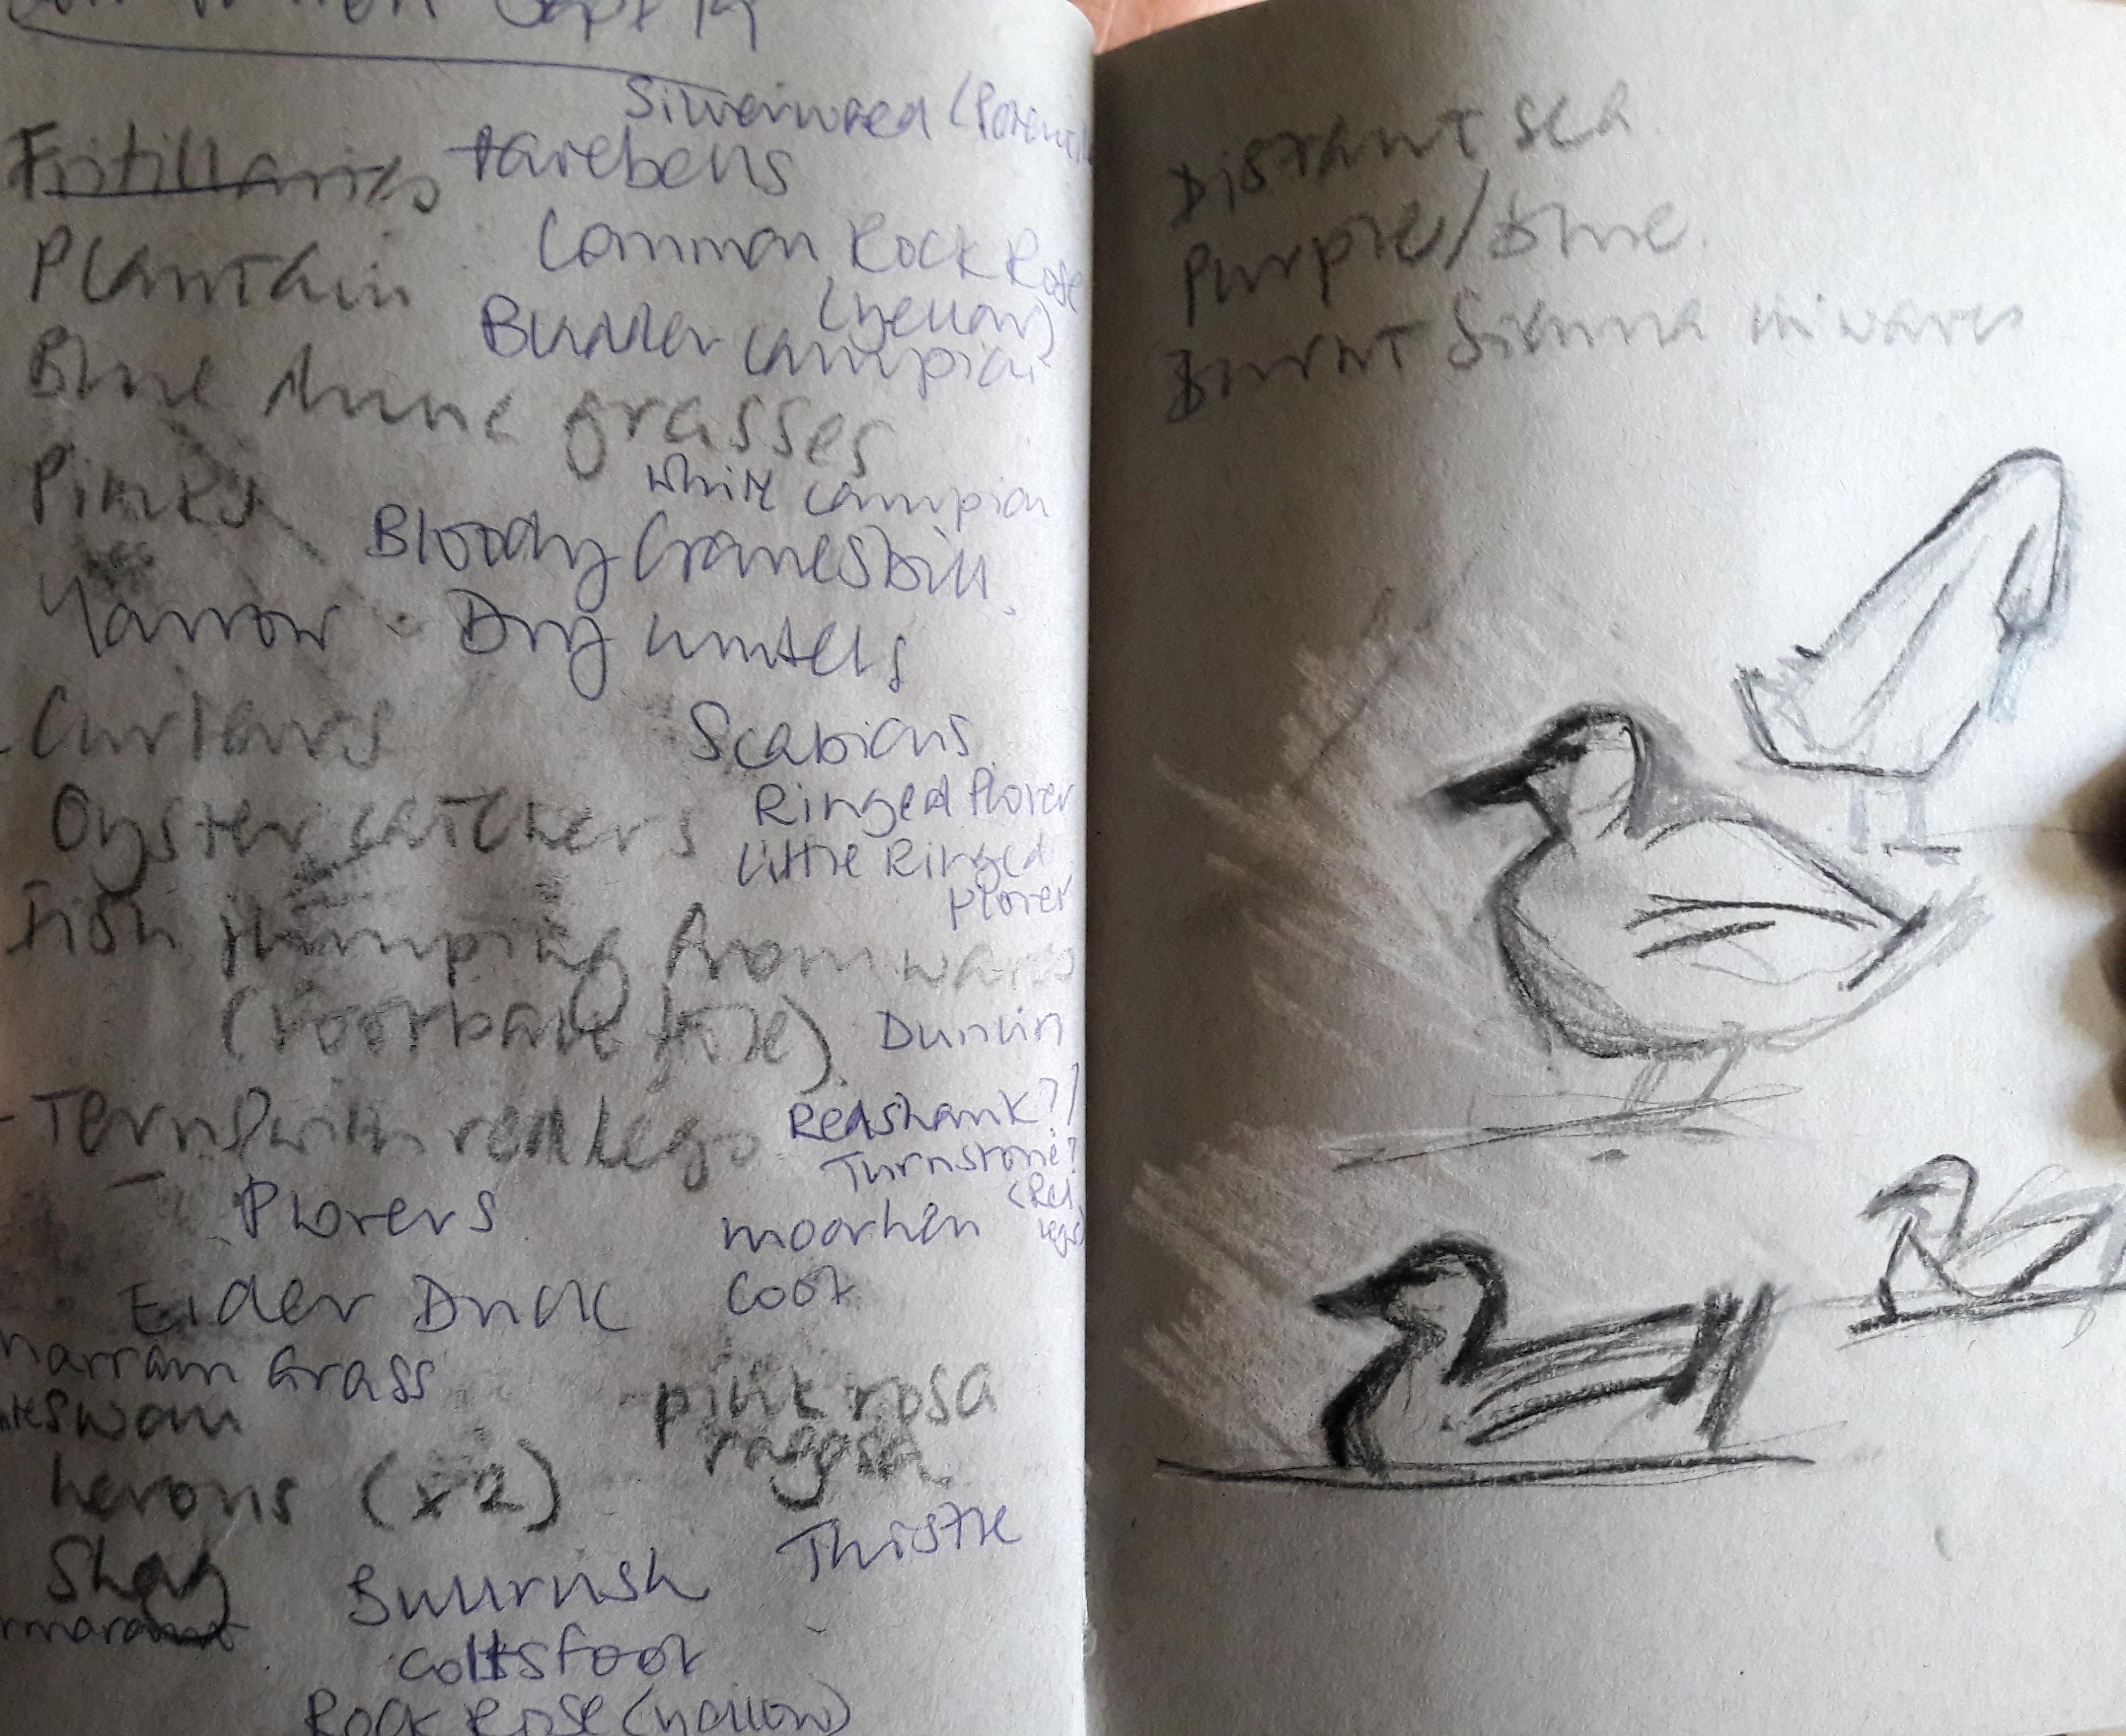 Sept 19
Silverweed (Potent
Fritillaries harebells
Plantain Common Rock Rose
(yellow)
Bladder campion
Blue dune grasses
Pinks white campion
Bloody Cranesbill.
Yarrow - Dry umbells
Curlews Scabious
Ringed Plover
Oyster catchers
Little Ringed
Plover
Fish jumping from waves
(football size). Dunlin
- Terns with red legs Redshank?/
Turnstone?
(Red
legs
Plovers moorhen
Eider Duck Coot
marram Grass
swan pink rosa
ragosa
herons (x2)
Shag Thistle
Bullrush
Coltsfoot
Rock Rose (yellow)
Distant sea
Purple/Blue.
Burnt Sienna in waves